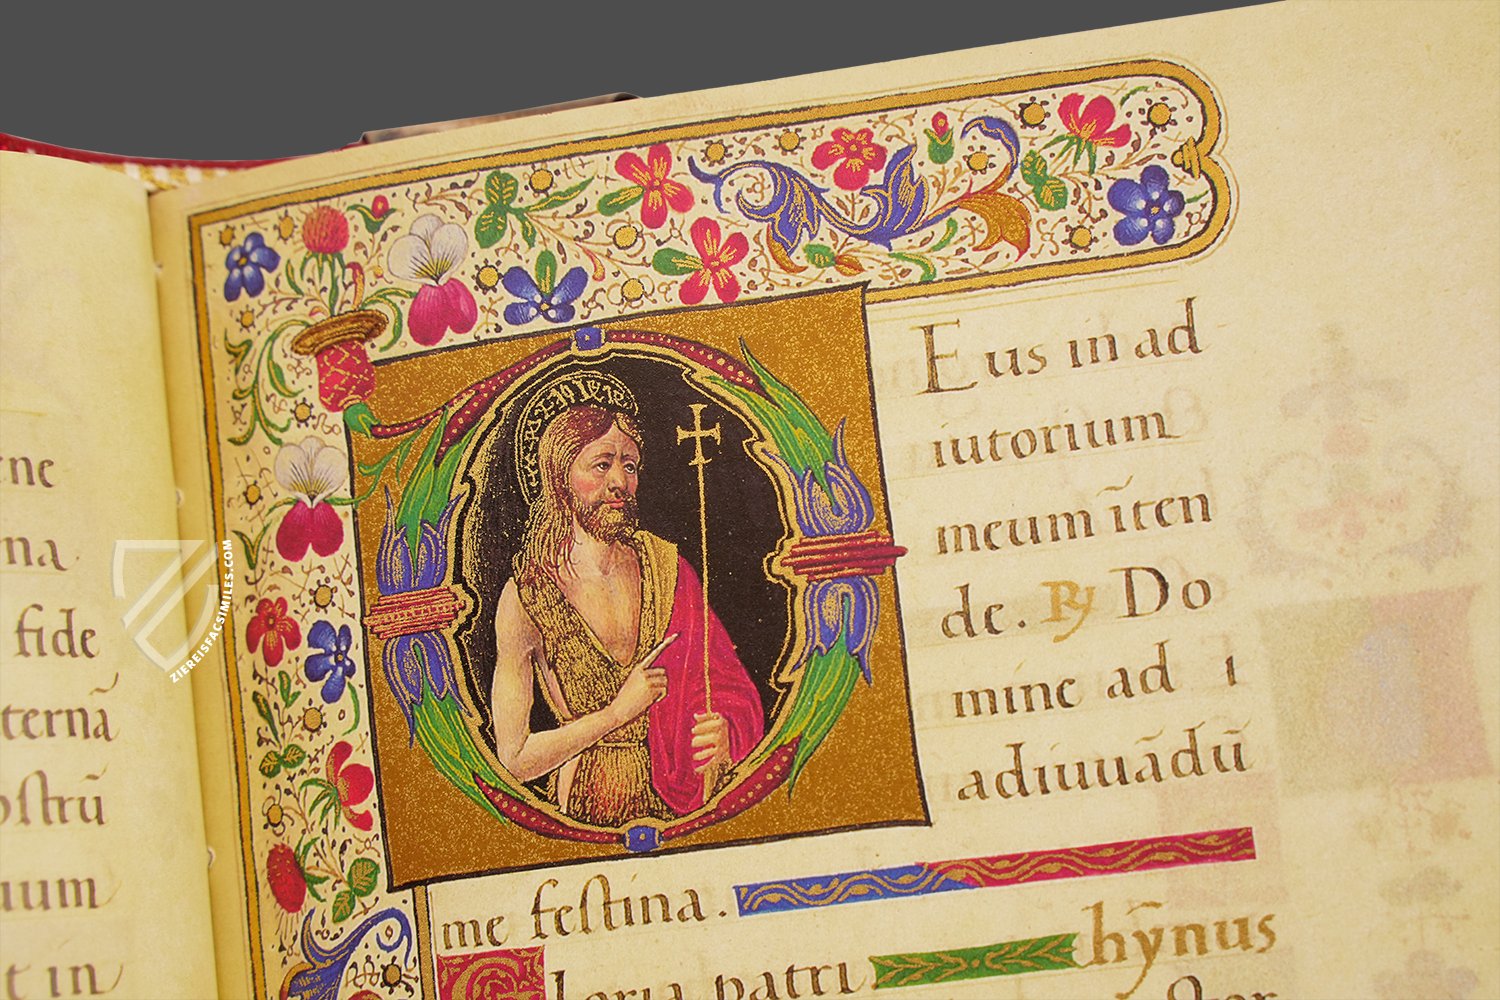 ene
na.
fide
ternā
ostrū
uum
t in
Eus in ad
iutorium
meum īten
de. ℟ Do
mine ad i
adiuuādū
me festina.
hȳnus
Gloria patri
ZIEREISFACSIMILES.COM